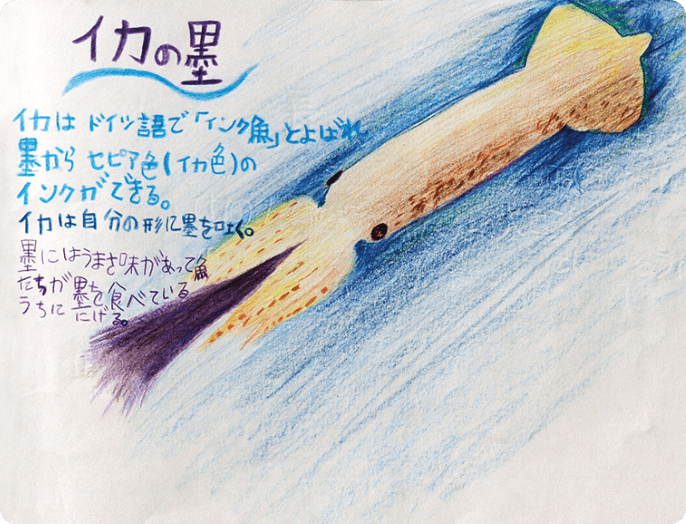 イカの墨
イカは ドイツ語で「インク魚」とよばれ
墨から セピア色(イカ色)の
インクができる。
イカは自分の形に墨を吐く。
墨にはうまさ味があって魚
たちが墨を食べている
うちににげる。